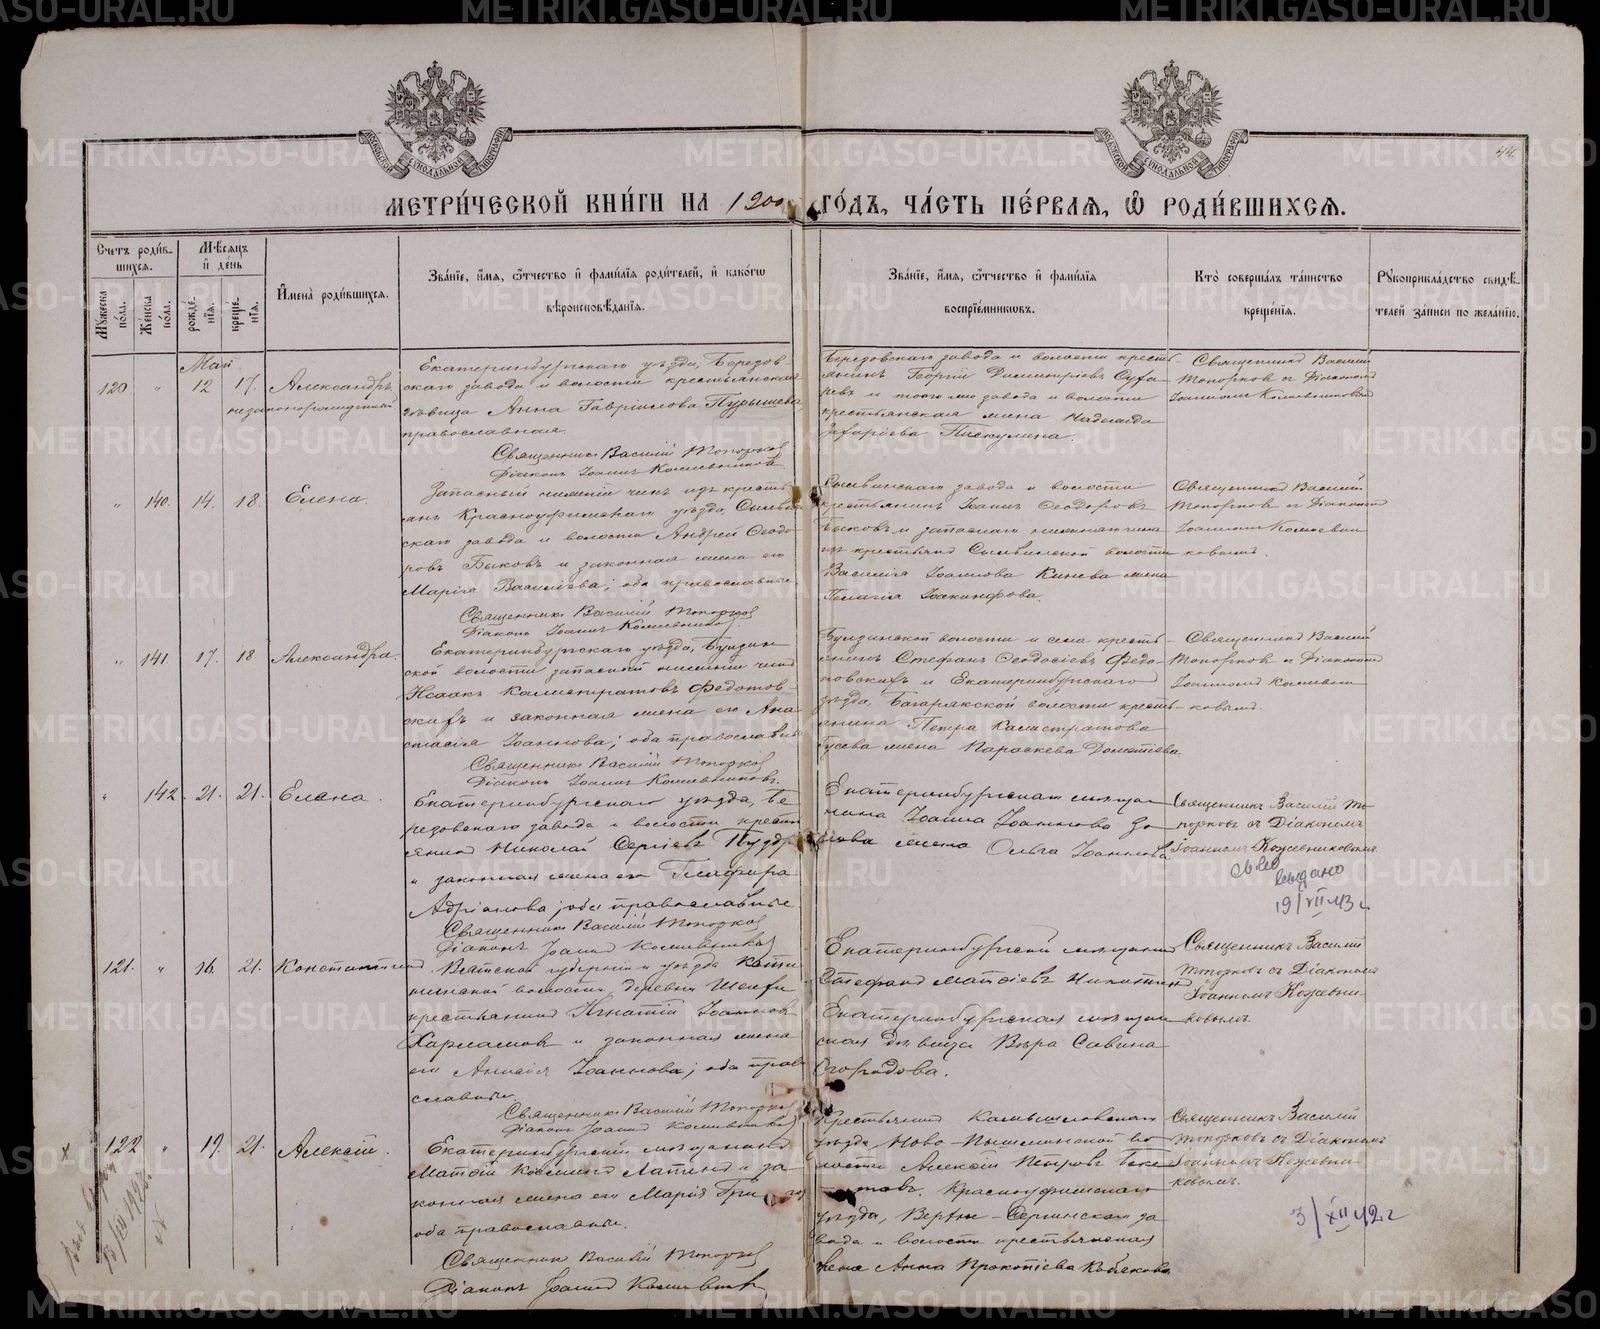 44.
МЕТРИ́ЧЕСКОЙ КНИ́ГИ НА 1900 ГО́ДЪ, ЧА́СТЬ ПЕ́РВАЯ, Ѿ РОДИ́ВШИХСЯ.
Счетъ роди́вшихся.
Мꙋжеска по́ла.
Же́нска по́ла.
Мѣ́сяцъ и де́нь
рожде́нїя.
креще́нїя.
И́мена роди́вшихся.
Зва́нїе, и́мя, ѻ́тчество и фами́лїя роди́телей, и како́гѡ
вѣроисповѣ́данїя.
Зва́нїе, и́мя, ѻ́тчество и фами́лїя
воспрїе́мникωвъ.
Кто̀ соверша́лъ та́инство
креще́нїя.
Рꙋкоприкла́дство свидѣ́телей за́писи по жела́нїю.
Май
120 " 12 17. Александръ
незаконорожденный
Екатеринбургскаго уѣзда, Березов-
скаго завода и волости крестьянская
дѣвица Анна Гавріилова Пурышева,
православная.
Священникъ Василій Топорковъ
Діаконъ Іоаннъ Кожевниковъ
Березовскаго завода и волости кресть-
янинъ Георгій Димитріевъ
и того же завода и волости
крестьянская жена Надежда
Пискулина.
Священникъ Василій
Топорковъ съ Діакономъ
Іоанномъ Кожевниковымъ
" 140. 14. 18. Елена.
Запасный нижній чинъ изъ кресть-
янъ Красноуфимскаго уѣзда, Сылвин-
скаго завода и волости Андрей Ѳеодо-
ровъ Быковъ и законная жена его
Марія Василіева; оба православные.
Священникъ Василій Топорковъ
Діаконъ Іоаннъ Кожевниковъ
Сылвинскаго завода и волости
крестьянинъ Іоаннъ Ѳеодоровъ
Быковъ и запаснаго нижняго чина
изъ крестьянъ Сылвинской волости
Василія Іоаннова Кинева жена
Пелагія Іоакинфова.
Священникъ Василій
Топорковъ и Діаконъ
Іоанномъ Кожевни-
ковымъ.
" 141 17. 18 Александра.
Екатеринбургскаго уѣзда,
ской волости запасный нижній чинъ
Исаакъ Каллистратовъ Федотов-
скихъ и законная жена его Ана-
стасія Іоаннова; оба православные
Священникъ Василій Топорковъ
Діаконъ Іоаннъ Кожевниковъ.
волости и села кресть-
янинъ Стефанъ Ѳеодосіевъ Федо-
товскихъ и Екатеринбургскаго
уѣзда, Багарякской волости кресть-
янина Петра Калистратова
Гусева жена Параскева Дометіева.
Священникъ Василій
Топорковъ и Діаконъ
Іоанномъ Кожевни-
ковымъ.
" 142. 21. 21. Елена.
Екатеринбургскаго уѣзда, Бе-
резовскаго завода и волости кресть-
янинъ Николай Сергіевъ
и законная жена его Глафира
Адріанова; оба православные
Священникъ Василій Топорковъ
Діаконъ Іоаннъ Кожевниковъ
Екатеринбургскаго мѣща-
нина Іоанна Іоаннова
жена Ольга Іоаннова
Священникъ Василій То-
порковъ съ Діакономъ
Іоанномъ Кожевниковымъ
выдано
19/VII 43 г.
121. " 16. 21. Константинъ.
Вятской губерніи и уѣзда
волости, деревни
крестьянинъ Игнатій Іоанновъ
Харламовъ и законная жена
его Анисія Іоаннова; оба право-
славные.
Священникъ Василій Топорковъ
Діаконъ Іоаннъ Кожевниковъ
Екатеринбургскій мѣщанинъ
Стефанъ Матѳіевъ Никитинъ
Екатеринбургская мѣщан-
ская дѣвица Вѣра Савина
Огородова.
Священникъ Василій
Топорковъ съ Діакономъ
Іоанномъ Кожевни-
ковымъ.
х 122 " 19. 21. Алексій.
Екатеринбургскій мѣщанинъ
Матѳій Косминъ Лапинъ и за-
конная жена его Марія
оба православные.
Священникъ Василій Топорковъ
Діаконъ Іоаннъ Кожевниковъ
Крестьянинъ Камышловскаго
уѣзда Ново-Пышминской во-
лости Алексій Петровъ
Красноуфимскаго
уѣзда, Верхне-Сергинскаго за-
вода и волости крестьянская
жена Анна Прокопіева Кобякова
Священникъ Василій
Топорковъ съ Діакономъ
Іоанномъ Кожевни-
ковымъ.
3/XII 42 г